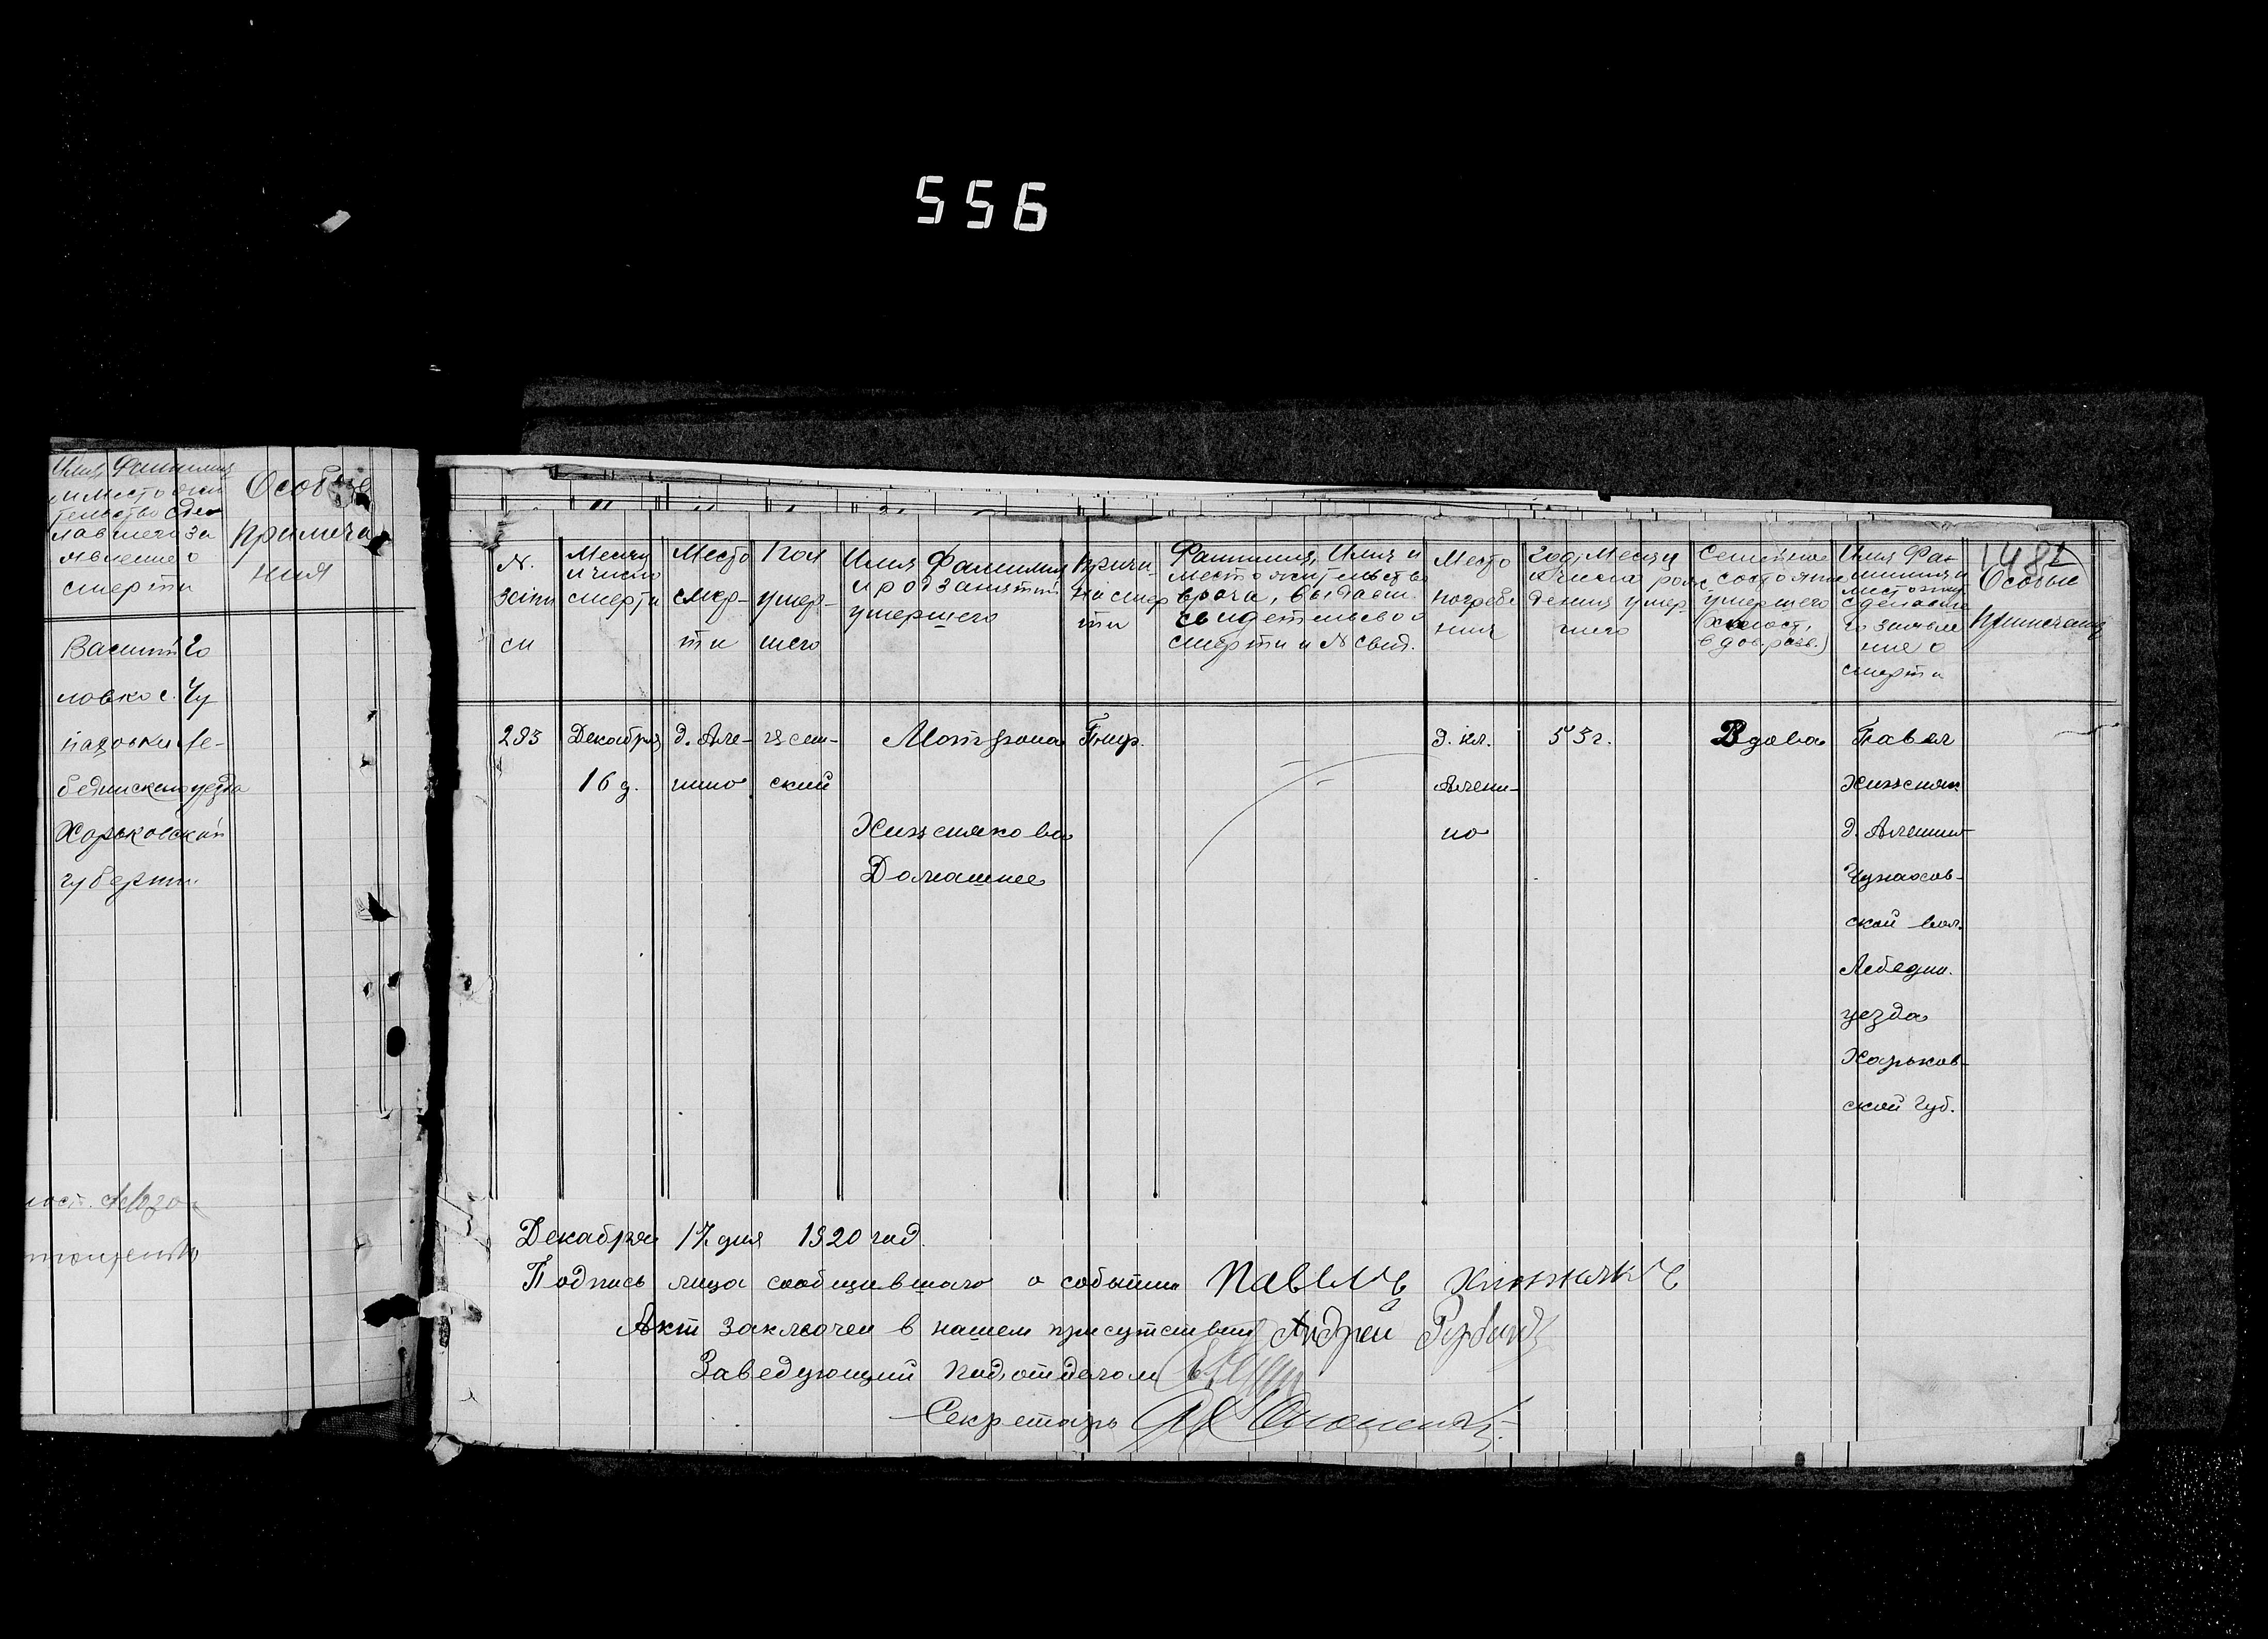 556
Имя Фамилия
и место жи
тельство сдел
лавшего за
явление о
смерти
Особые
примеча
ния
Василий Го
ловко с. Чу
паховки Ле-
бединского уезда
Харьковской
губернии
148
N.
запи
си
Месяц
и число
смерти
Место
смер-
ти
Пол
умер-
шего
Имя Фамилия
и род занятий
умершего
Причи-
на смер
ти
Фамилия, Имя и
место жительство
врача, выдавш.
свидетельство о
смерти и N свид.
Место
погребе
ния
Год, Месяц
и число рож
дения умер
шего
Семейное
состояние
умершего
(холост,
вдов. разв.)
Имя Фа
милия и
место жит
сделавше
го заявле
ние о
смерти
Особые
примечания
293
Декабря
16 д.
д. Але-
шино
жен-
ский
Мотрона
Хижнякова
Домашнее
Д. кл.
Алеши-
но
53 г.
Вдова
Павел
Хижняк
д. Алешино
Чупахов-
ской вол.
Лебедин.
уезда
Харьков-
ской губ.
Декабря 17 дня 1920 год.
Подпись лица сообщившаго о событии Павелъ Хижнякъ
Акт заключен в нашем присутствии Андрей
Заведующий Подотделом
Секретарь